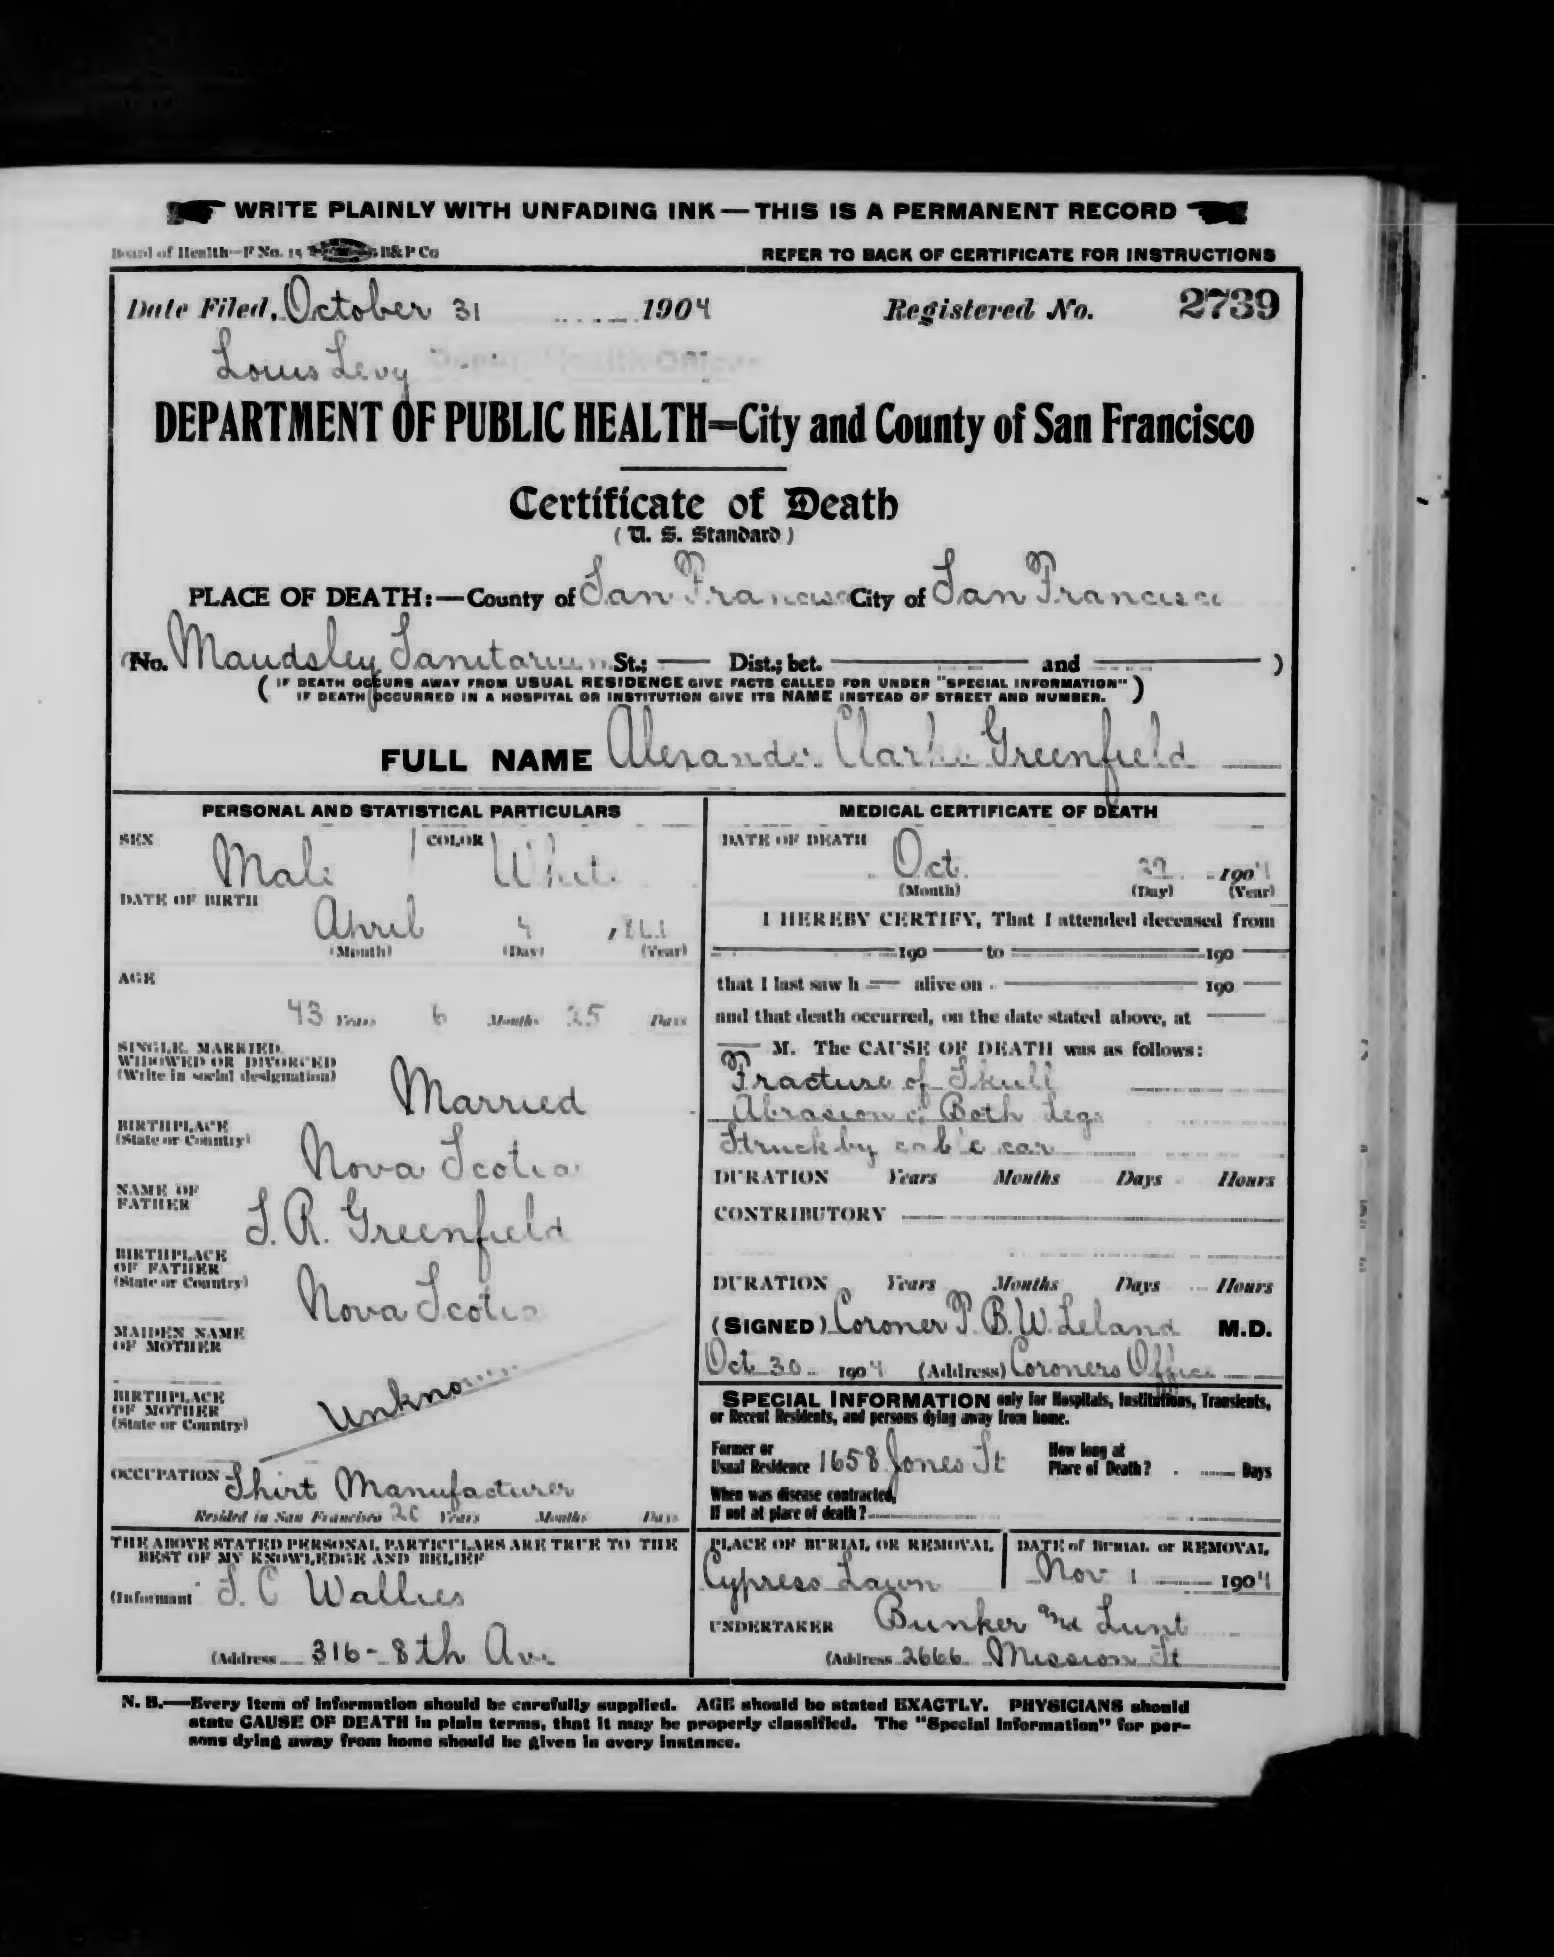 WRITE PLAINLY WITH UNFADING INK — THIS IS A PERMANENT RECORD
Board of Health—F No. 15 B&P Co REFER TO BACK OF CERTIFICATE FOR INSTRUCTIONS
Date Filed, October 31 1904 Registered No. 2739
Louis Levy Deputy Health Officer
DEPARTMENT OF PUBLIC HEALTH=City and County of San Francisco
Certificate of Death
(U. S. Standard)
PLACE OF DEATH:—County of San Francisco City of San Francisco
(No. Maudsley Sanitarium St.; — Dist.; bet. — and — )
( IF DEATH OCCURS AWAY FROM USUAL RESIDENCE GIVE FACTS CALLED FOR UNDER "SPECIAL INFORMATION"
IF DEATH OCCURRED IN A HOSPITAL OR INSTITUTION GIVE ITS NAME INSTEAD OF STREET AND NUMBER. )
FULL NAME Alexander Clarke Greenfield
PERSONAL AND STATISTICAL PARTICULARS
SEX Male COLOR White
DATE OF BIRTH
April 4, 1861
(Month) (Day) (Year)
AGE
43 Years 6 Months 25 Days
SINGLE, MARRIED,
WIDOWED OR DIVORCED
(Write in social designation) Married
BIRTHPLACE
(State or Country) Nova Scotia
NAME OF
FATHER S. R. Greenfield
BIRTHPLACE
OF FATHER
(State or Country) Nova Scotia
MAIDEN NAME
OF MOTHER
Unknown
BIRTHPLACE
OF MOTHER
(State or Country)
OCCUPATION Shirt Manufacturer
Resided in San Francisco 20 Years Months Days
THE ABOVE STATED PERSONAL PARTICULARS ARE TRUE TO THE
BEST OF MY KNOWLEDGE AND BELIEF
(Informant S. C Wallies
(Address 316 - 8th Ave
MEDICAL CERTIFICATE OF DEATH
DATE OF DEATH
Oct. 29 1904
(Month) (Day) (Year)
I HEREBY CERTIFY, That I attended deceased from
190 — to — 190 —
that I last saw h — alive on — 190 —
and that death occurred, on the date stated above, at —
— M. The CAUSE OF DEATH was as follows:
Fracture of Skull
Abrasion of Both Legs
Struck by cable car
DURATION Years Months Days Hours
CONTRIBUTORY
DURATION Years Months Days Hours
(SIGNED) Coroner T. B. W. Leland M.D.
Oct 30 1904 (Address) Coroners Office
SPECIAL INFORMATION only for Hospitals, Institutions, Transients,
or Recent Residents, and persons dying away from home.
Former or
Usual Residence 1658 Jones St How long at
Place of Death? Days
When was disease contracted,
If not at place of death?
PLACE OF BURIAL OR REMOVAL DATE of BURIAL or REMOVAL
Cypress Lawn Nov 1 1904
UNDERTAKER Bunker and Lunt
(Address 2666 Mission St
N. B.—Every item of information should be carefully supplied. AGE should be stated EXACTLY. PHYSICIANS should
state CAUSE OF DEATH in plain terms, that it may be properly classified. The "Special Information" for per-
sons dying away from home should be given in every instance.